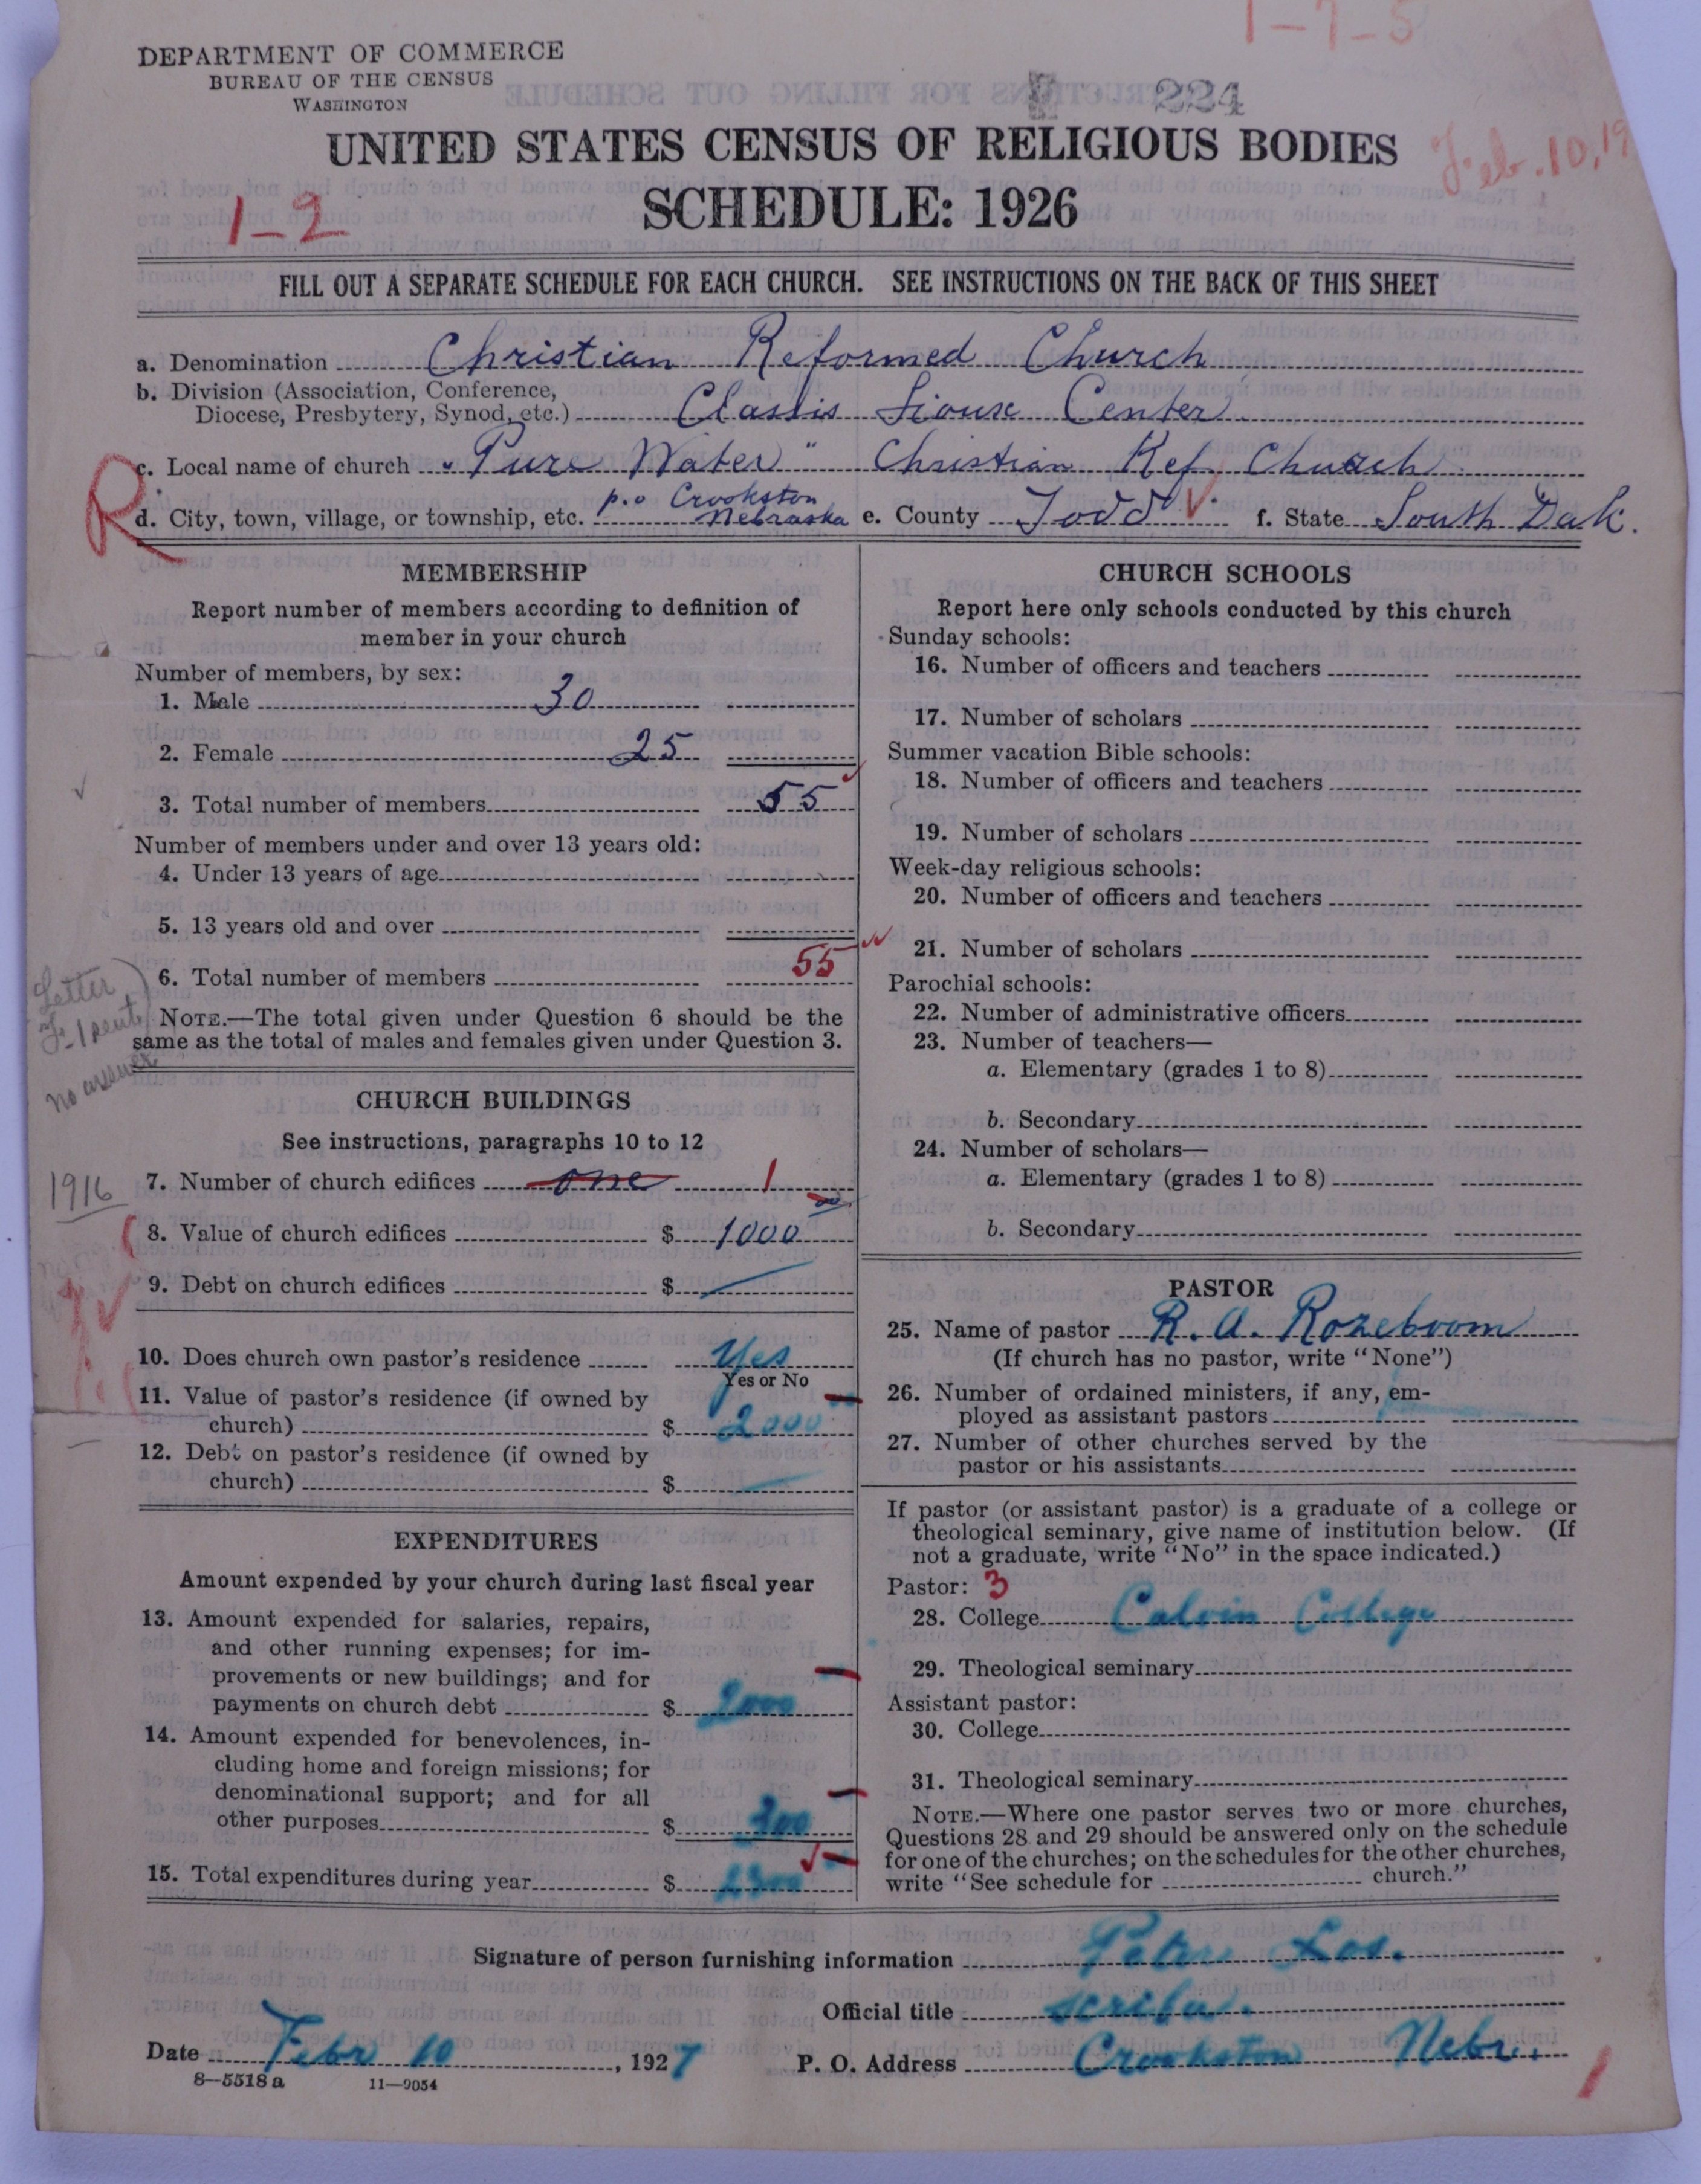 1-7-5
DEPARTMENT OF COMMERCE
BUREAU OF THE CENSUS
WASHINGTON
224
UNITED STATES CENSUS OF RELIGIOUS BODIES
Feb. 10, 19
SCHEDULE: 1926
1-2
FILL OUT A SEPARATE SCHEDULE FOR EACH CHURCH. SEE INSTRUCTIONS ON THE BACK OF THIS SHEET
a. Denomination Christian Reformed Church
b. Division (Association, Conference,
Diocese, Presbytery, Synod, etc.) Classis Sioux Center
R
c. Local name of church "Pure Water" Christian Ref. Church
d. City, town, village, or township, etc. p.o Crookston Nebraska e. County Todd f. State South Dak.
MEMBERSHIP
Report number of members according to definition of
member in your church
Number of members, by sex:
1. Male 30
2. Female 25
3. Total number of members 55
Number of members under and over 13 years old:
4. Under 13 years of age
5. 13 years old and over
6. Total number of members 55
Letter
sent
no answer
NOTE.—The total given under Question 6 should be the
same as the total of males and females given under Question 3.
CHURCH BUILDINGS
See instructions, paragraphs 10 to 12
1916
7. Number of church edifices one 1
8. Value of church edifices $ 1000
9. Debt on church edifices $
10. Does church own pastor's residence Yes
Yes or No
11. Value of pastor's residence (if owned by
church) $ 2000
12. Debt on pastor's residence (if owned by
church) $
EXPENDITURES
Amount expended by your church during last fiscal year
13. Amount expended for salaries, repairs,
and other running expenses; for im-
provements or new buildings; and for
payments on church debt $ 2000
14. Amount expended for benevolences, in-
cluding home and foreign missions; for
denominational support; and for all
other purposes $ 300
15. Total expenditures during year $ 2300
CHURCH SCHOOLS
Report here only schools conducted by this church
Sunday schools:
16. Number of officers and teachers
17. Number of scholars
Summer vacation Bible schools:
18. Number of officers and teachers
19. Number of scholars
Week-day religious schools:
20. Number of officers and teachers
21. Number of scholars
Parochial schools:
22. Number of administrative officers
23. Number of teachers—
a. Elementary (grades 1 to 8)
b. Secondary
24. Number of scholars—
a. Elementary (grades 1 to 8)
b. Secondary
PASTOR
25. Name of pastor R. A. Rozeboom
(If church has no pastor, write "None")
26. Number of ordained ministers, if any, em-
ployed as assistant pastors
27. Number of other churches served by the
pastor or his assistants
If pastor (or assistant pastor) is a graduate of a college or
theological seminary, give name of institution below. (If
not a graduate, write "No" in the space indicated.)
Pastor: 3
28. College Calvin College
29. Theological seminary
Assistant pastor:
30. College
31. Theological seminary
NOTE.—Where one pastor serves two or more churches,
Questions 28 and 29 should be answered only on the schedule
for one of the churches; on the schedules for the other churches,
write "See schedule for church."
Signature of person furnishing information Peter Los.
Official title scriba.
Date Febr 10, 1927 P. O. Address Crookston Nebr.
8—5518 a 11—9054
1